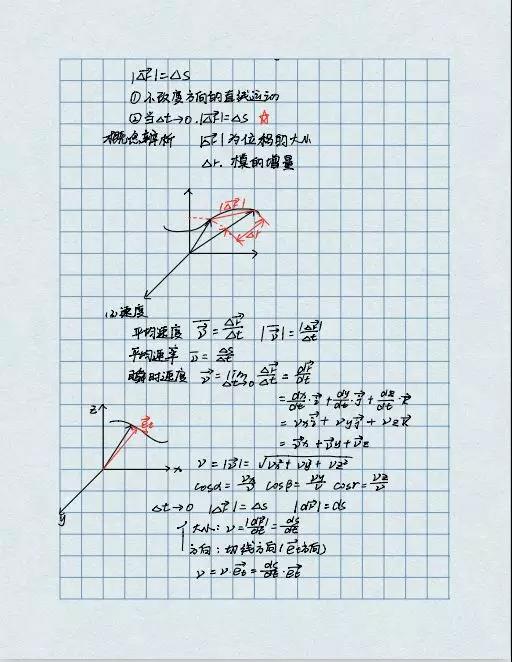 |Δr⃗|=Δs
①不改变方向的直线运动
②当Δt→0,|Δr⃗|=Δs ☆
概念辨析 |Δr⃗|为位移的大小
Δr.模的增量
|Δr⃗|
Δr
(2)速度
平均速度 v⃗̄=Δr⃗/Δt |v⃗̄|=|Δr⃗|/Δt
平均速率 v̄=Δs/Δt
瞬时速度 v⃗=lim Δt→0 Δr⃗/Δt=dr⃗/dt
=dx/dt·i⃗+dy/dt·j⃗+dz/dt·k⃗
=vx i⃗+vy j⃗+vz k⃗
=v⃗x+v⃗y+v⃗z
z
e⃗t
x
y
v=|v⃗|=√(vx²+vy²+vz²)
cosα=vx/v cosβ=vy/v cosr=vz/v
Δt→0 |Δr⃗|=Δs |dr⃗|=ds
大小:v=|dr⃗|/dt=ds/dt
方向:切线方向(e⃗t方向)
v=v·e⃗t=ds/dt·e⃗t